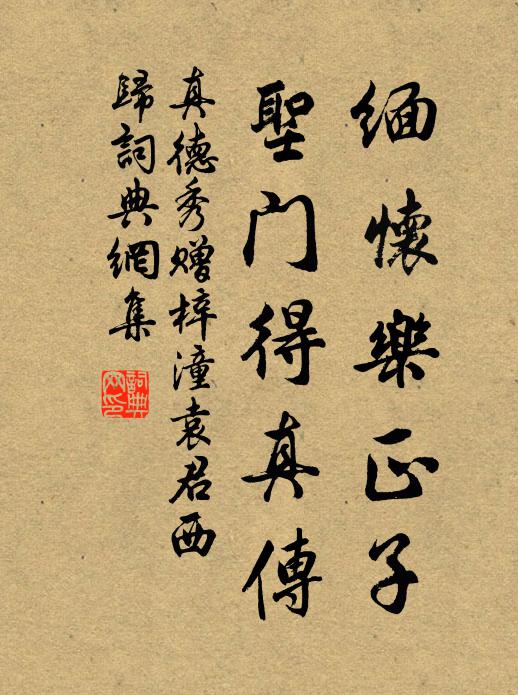 緬懷樂正子
聖門得真傳
真德秀贈梓潼袁君西
歸詞典網集
詞典
网印